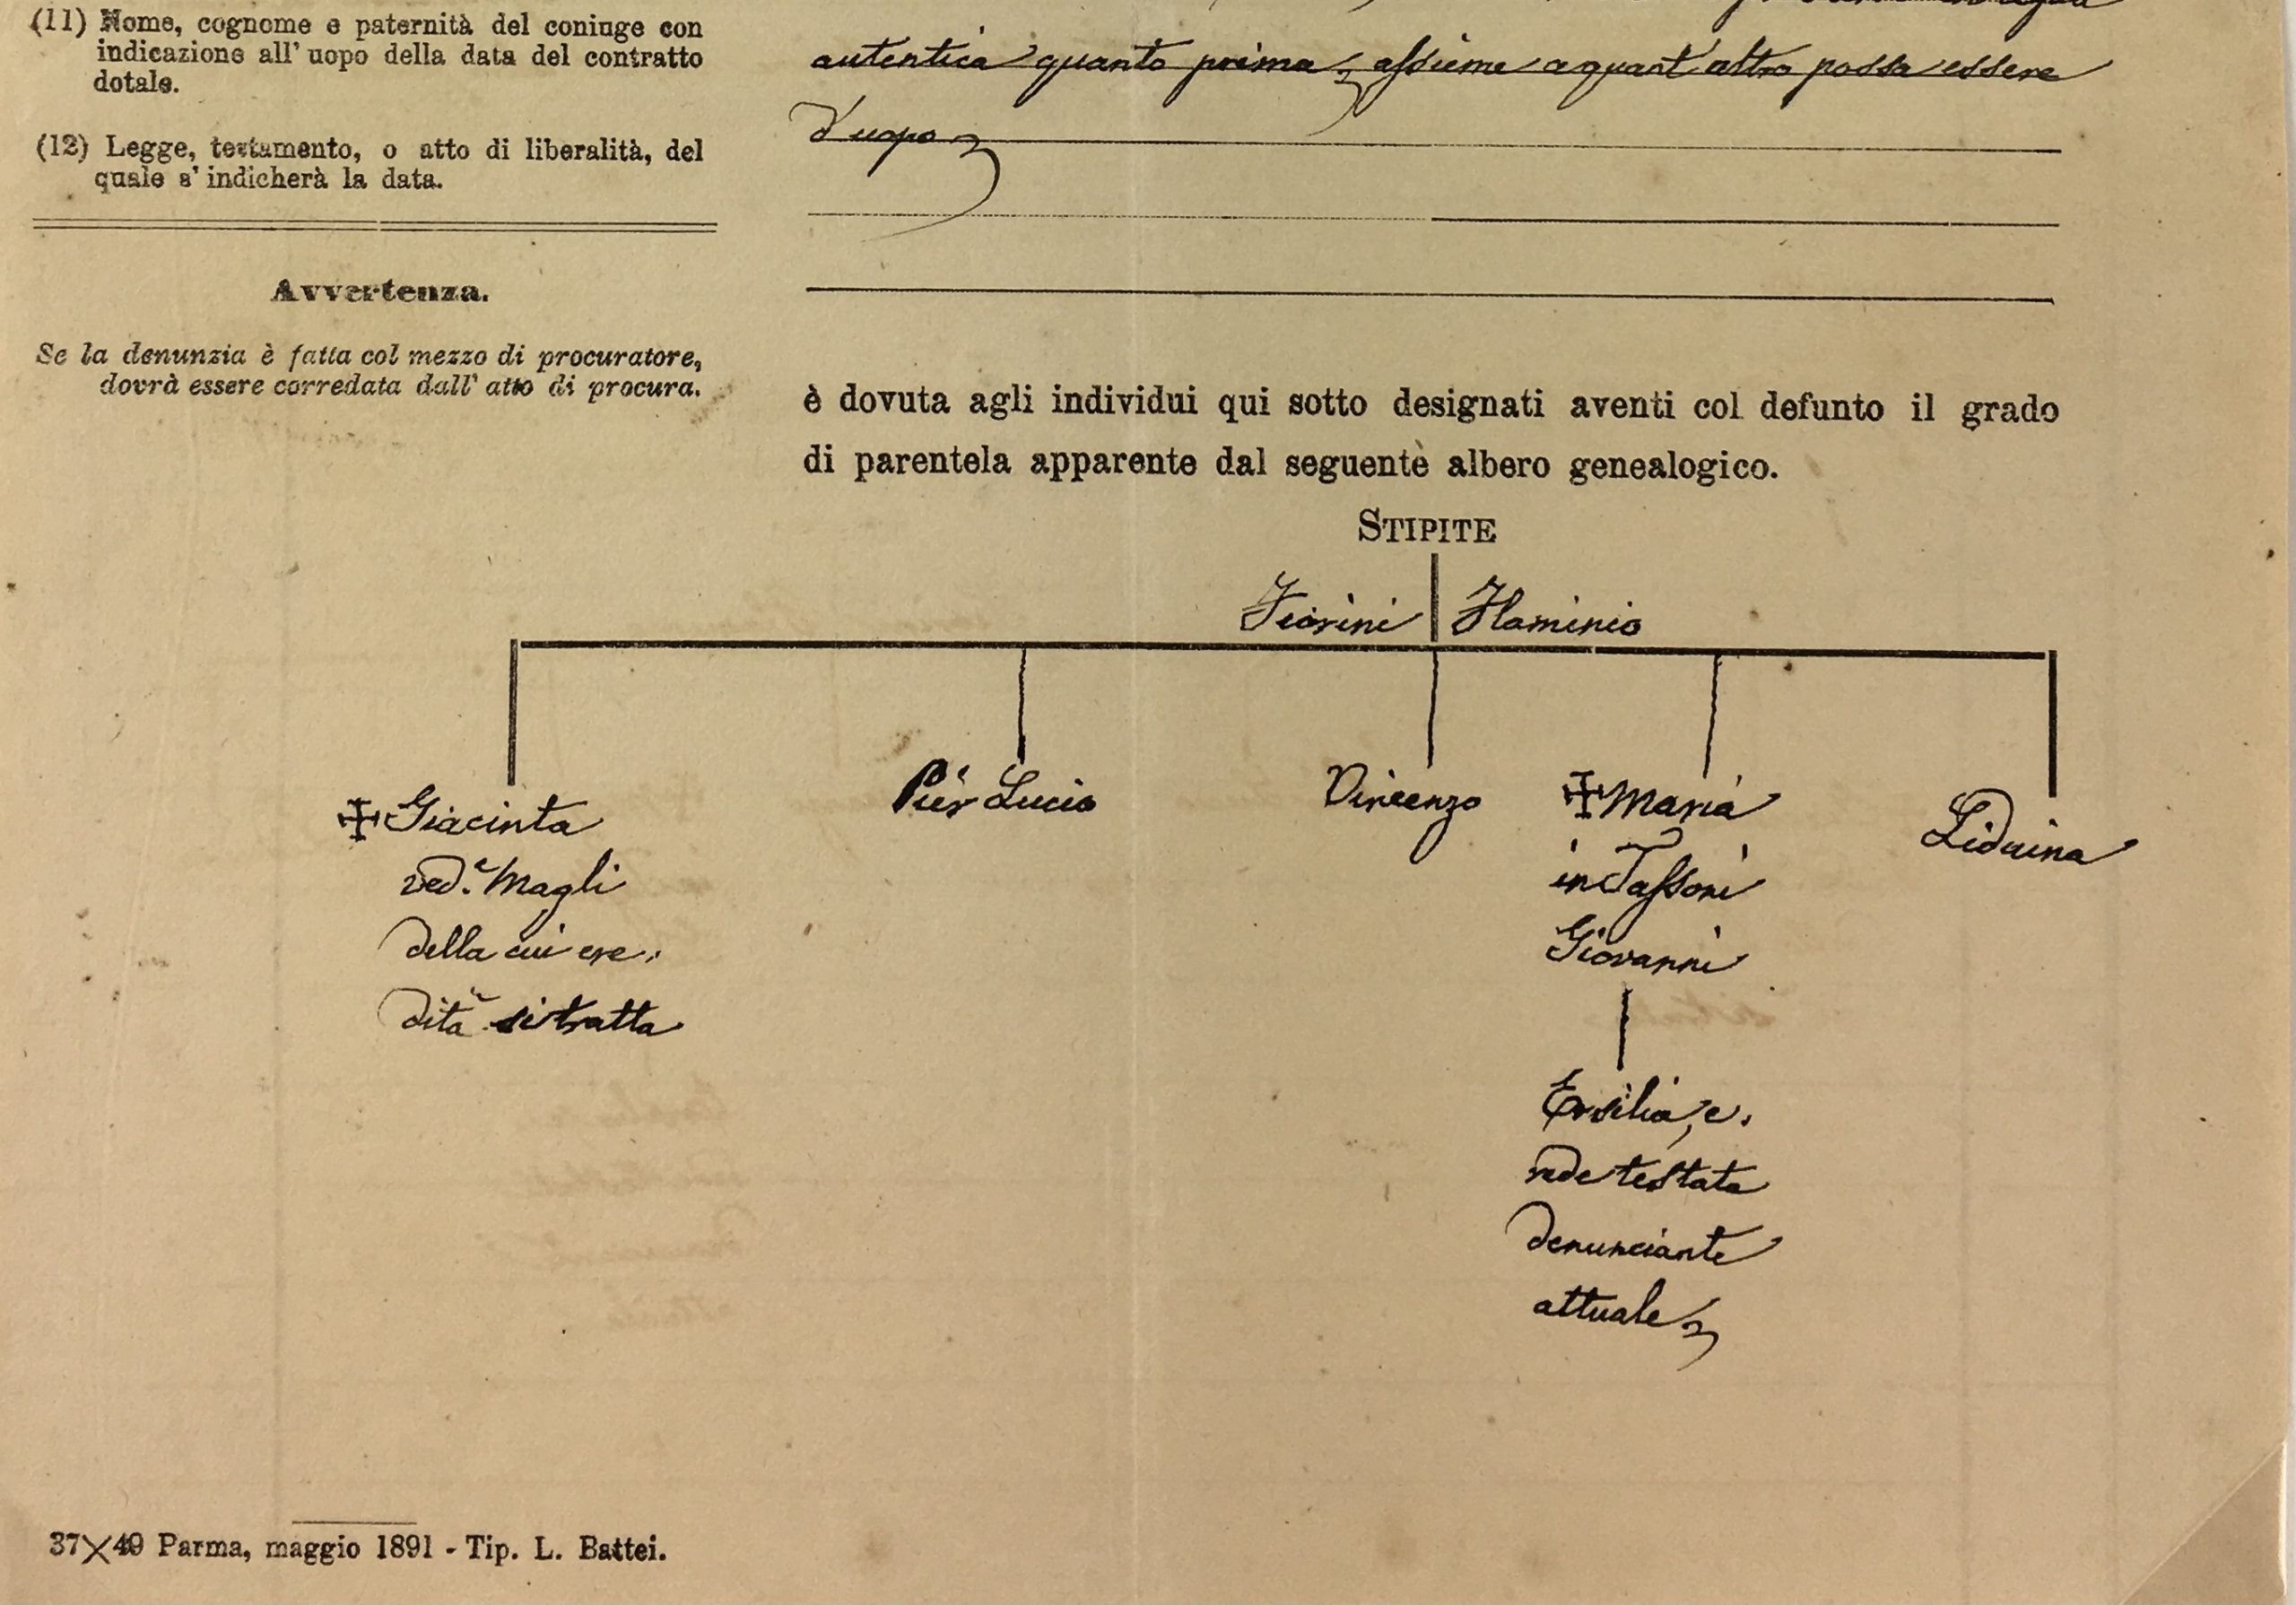 (11) Nome, cognome e paternità del coniuge con
indicazione all' uopo della data del contratto
dotale.
(12) Legge, testamento, o atto di liberalità, del
quale s' indicherà la data.
Avvertenza.
Se la denunzia è fatta col mezzo di procuratore,
dovrà essere corredata dall' atto di procura.
autentica quanto prima, assieme a quant'altro possa essere
d'uopo
è dovuta agli individui qui sotto designati aventi col defunto il grado
di parentela apparente dal seguente albero genealogico.
STIPITE
Fiorini Flaminio
Giacinta
ved.ᵃ Magli
della cui ere„
dità si tratta
Pier Lucio
Vincenzo
Maria
in Tassoni
Giovanni
Ersilia, e„
rede testata
denunciante
attuale
Liduina
37×49 Parma, maggio 1891 - Tip. L. Battei.